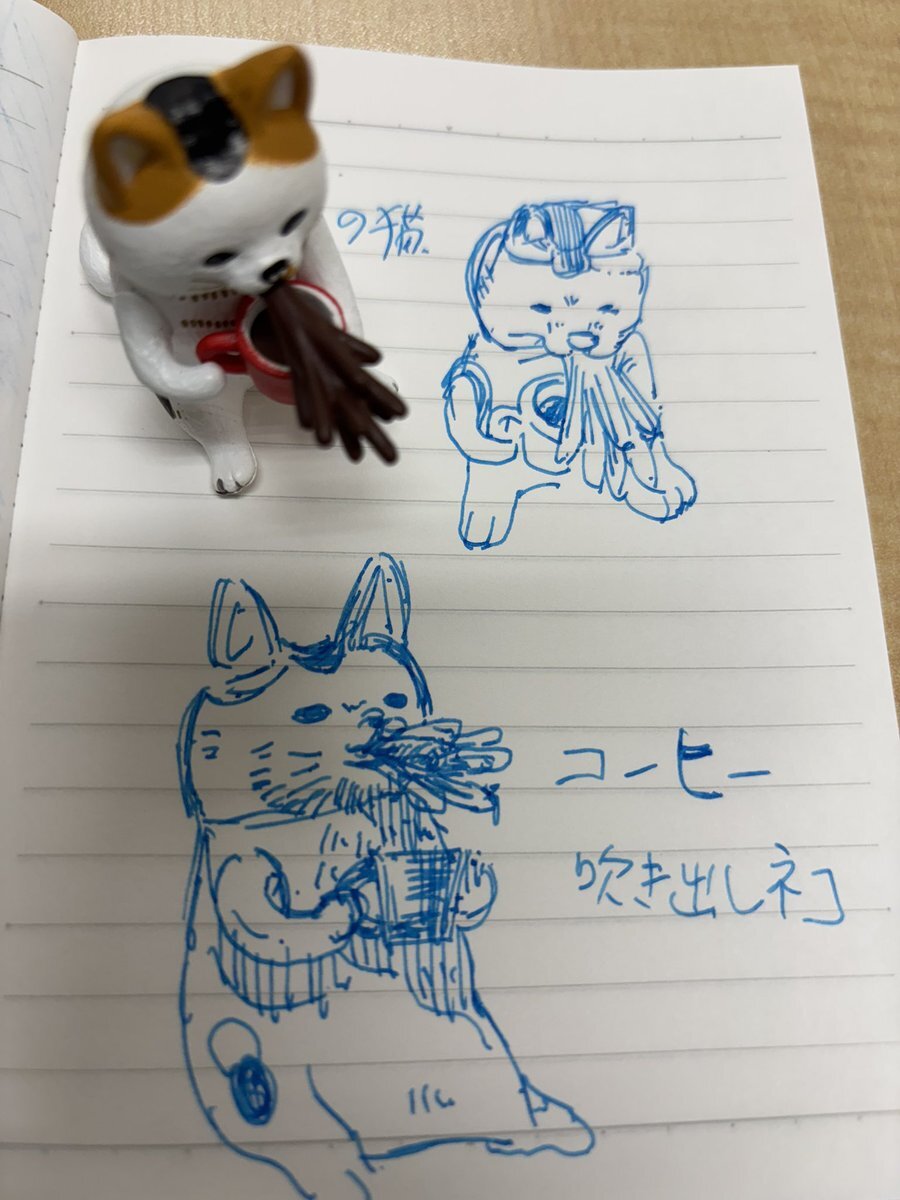 の猫
コーヒー
吹き出しネコ